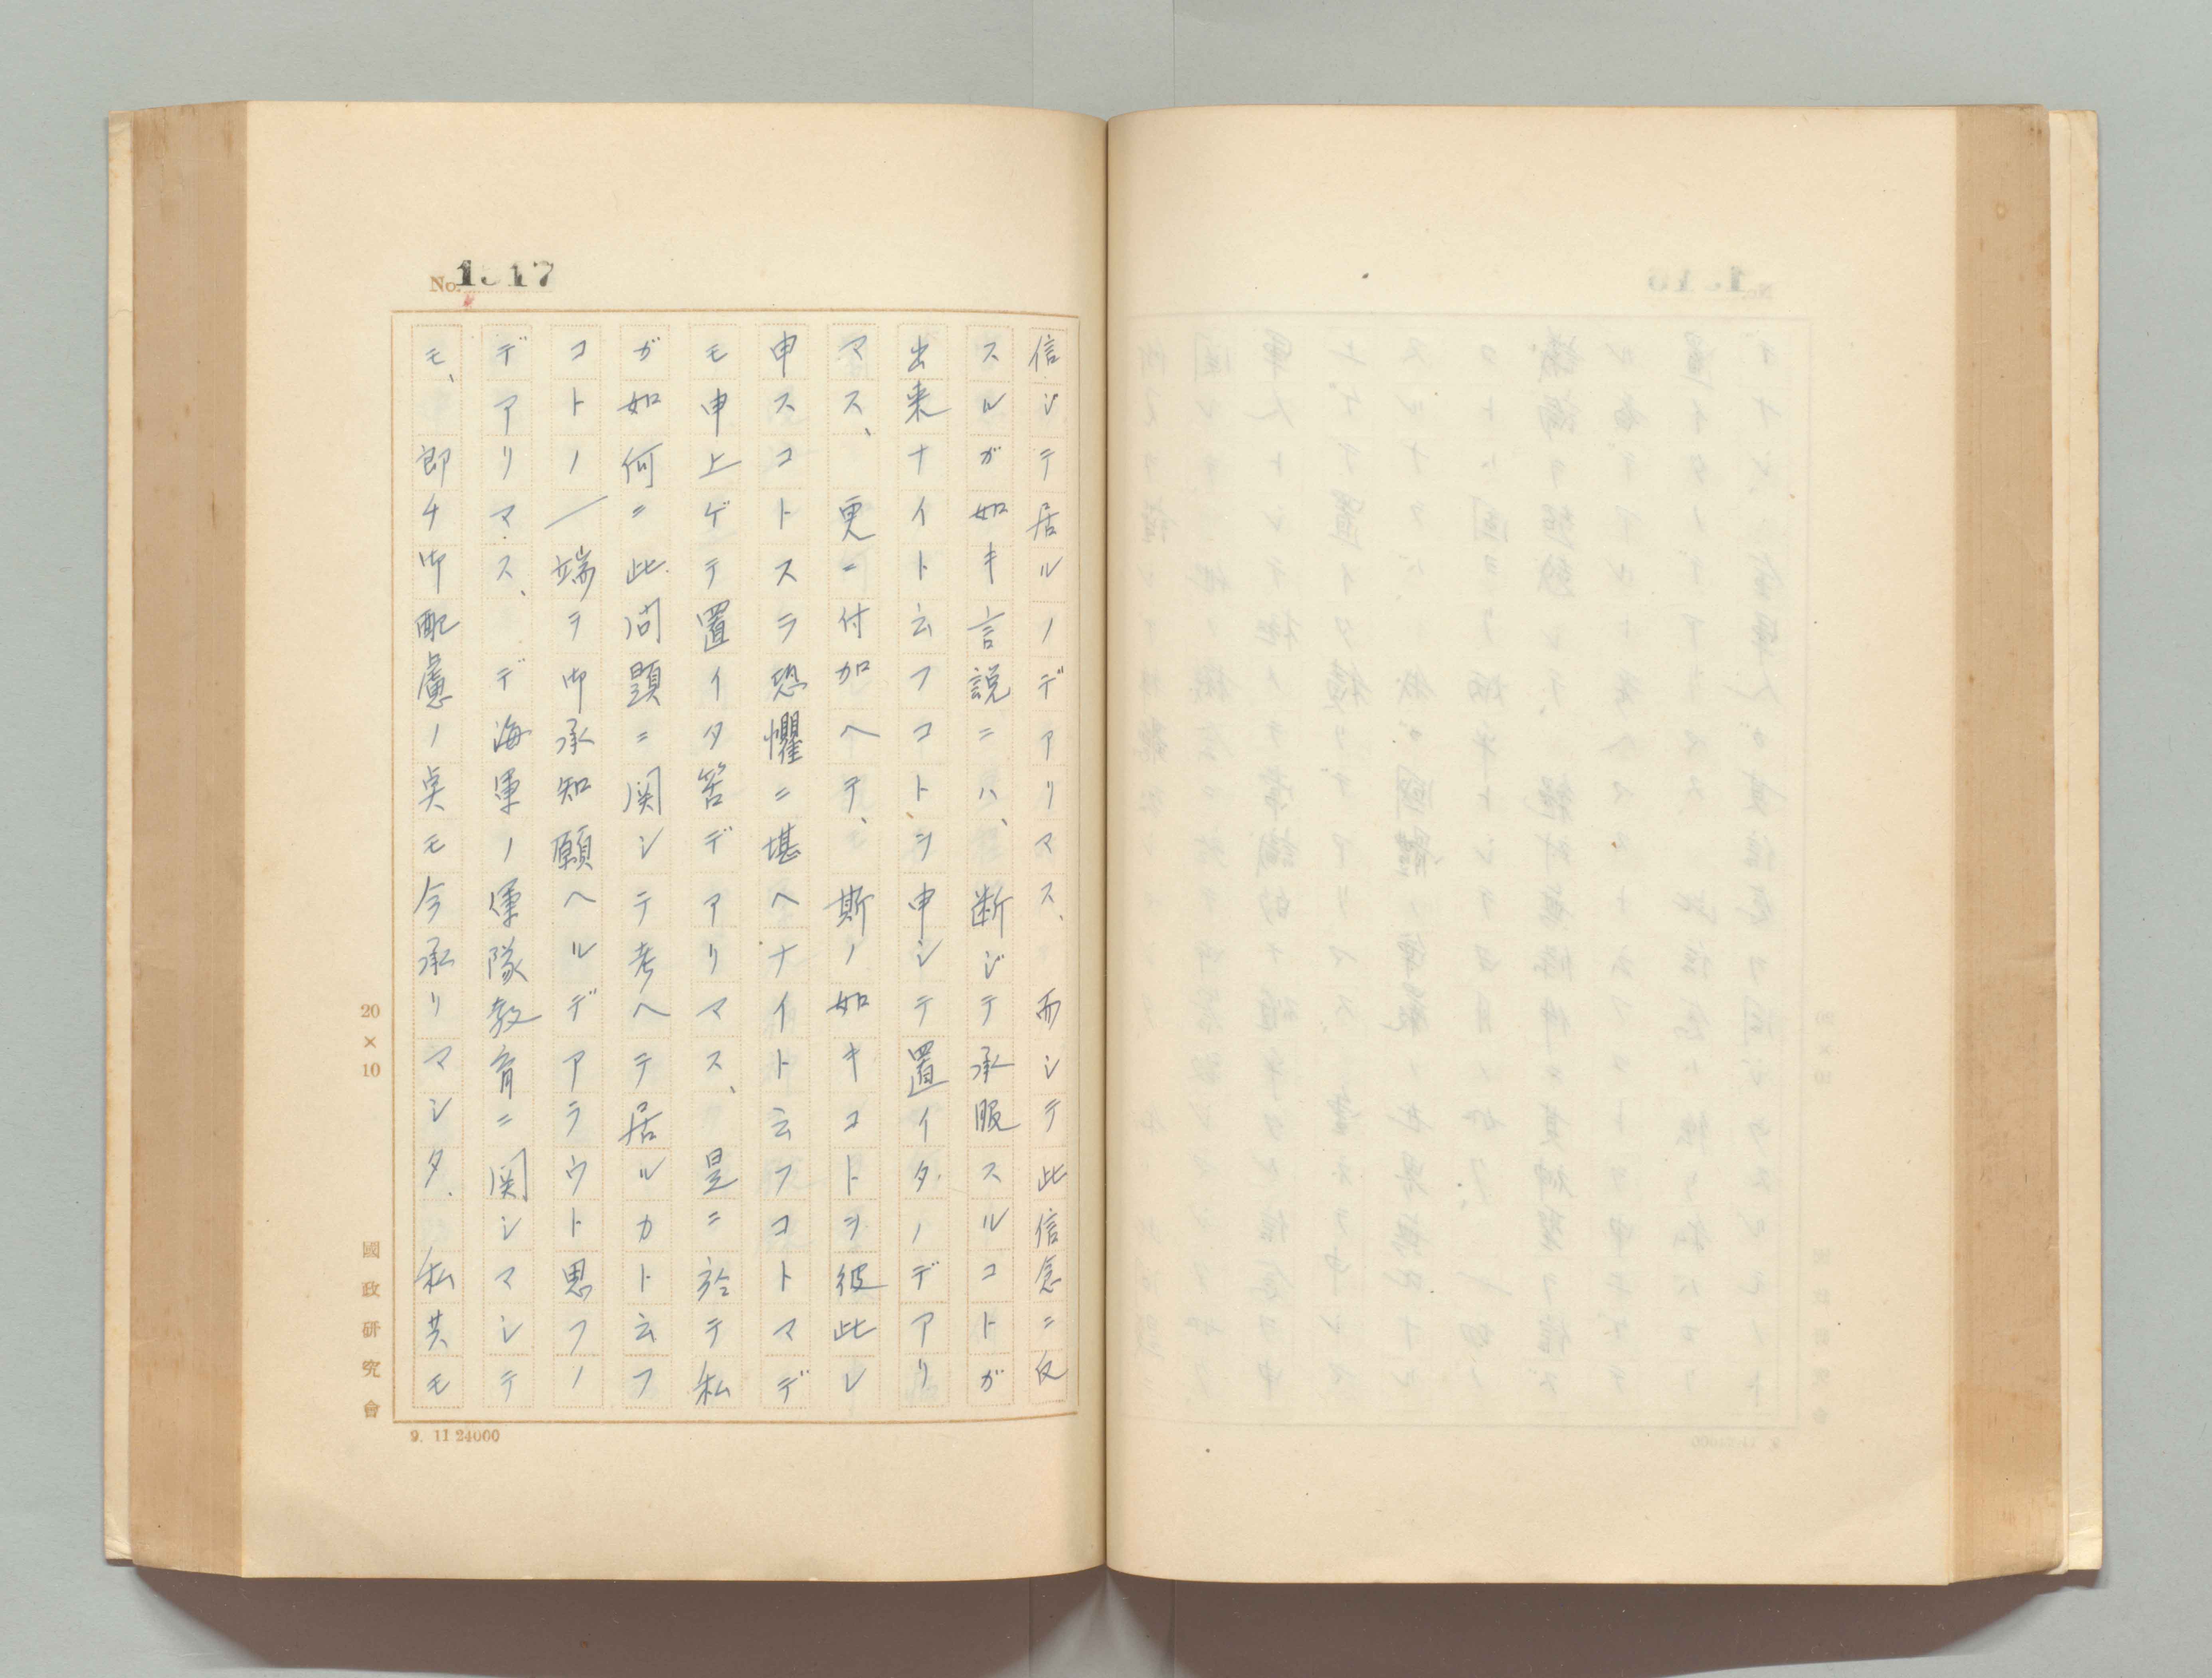 信ジテ居ルノデアリマス、而シテ此信念ニ反
スルガ如キ言説ニハ、断ジテ承服スルコトガ
出来ナイト云フコトヲ申シテ置イタノデアリ
マス、更ニ付加ヘテ、斯ノ如キコトヲ彼此レ
申スコトスラ恐懼ニ堪ヘナイト云フコトマデ
モ申上ゲテ置イタ筈デアリマス、是ニ於テ私
ガ如何ニ此問題ニ関シテ考ヘテ居ルカト云フ
コトノ一端ヲ御承知願ヘルデアラウト思フノ
デアリマス、デ海軍ノ軍隊教育ニ関シマシテ
モ、即チ御配慮ノ点モ今承リマシタ、私共モ
20×10
國政研究會
9. 11 24000